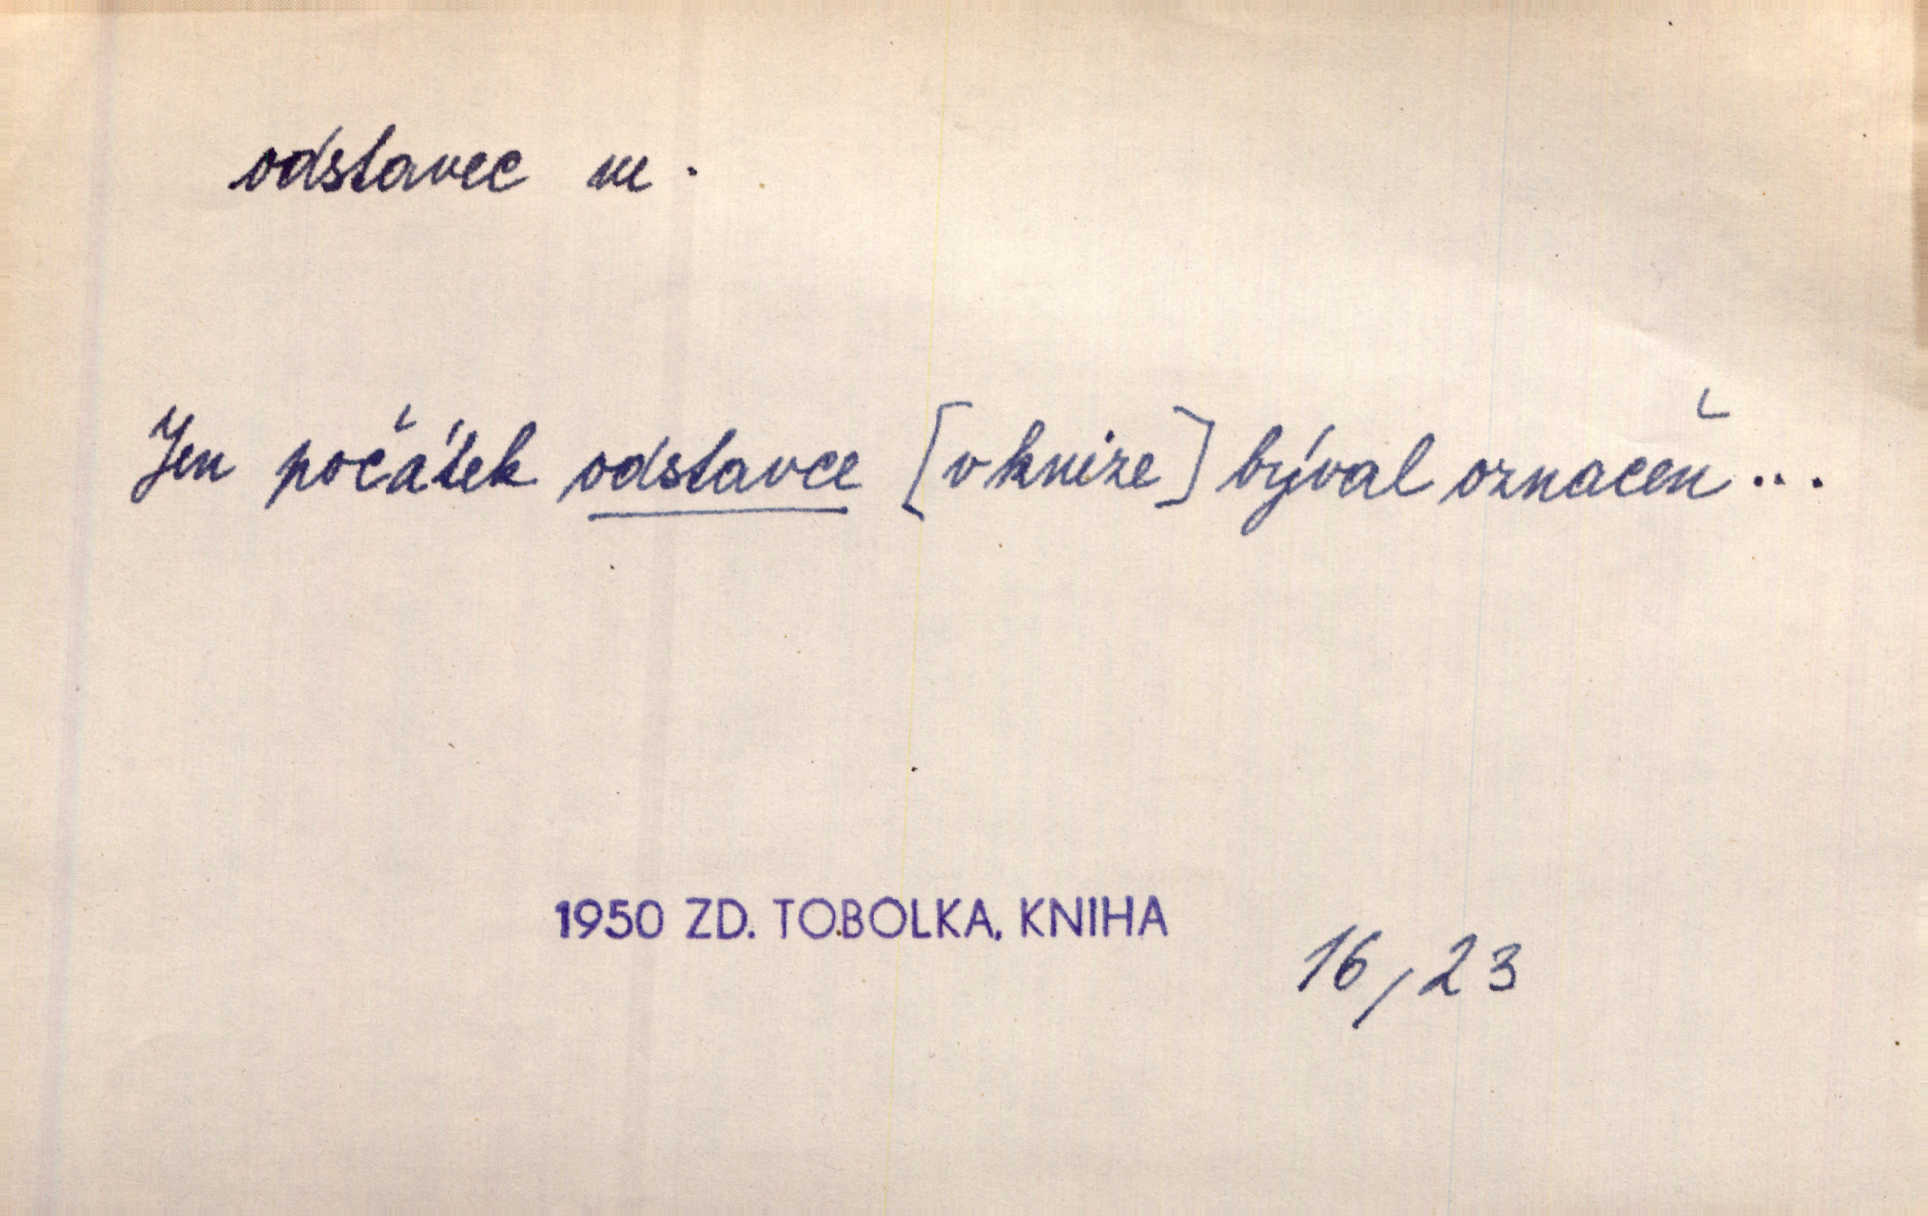 odstavec m.
Jen počátek odstavce [v knize] býval označen...
1950 ZD. TOBOLKA, KNIHA
16, 23